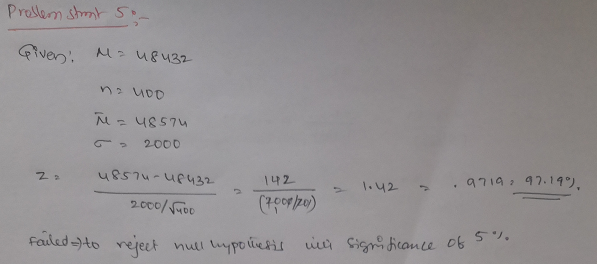 Problem stmt 5:-
Given: M = 48432
n = 400
M̄ = 48574
σ = 2000
Z = 48574-48432 / 2000/√400 = 142 / (2000/20) = 1.42 = .9719 = 97.19%.
Failed => to reject null hypothesis with significance of 5%.